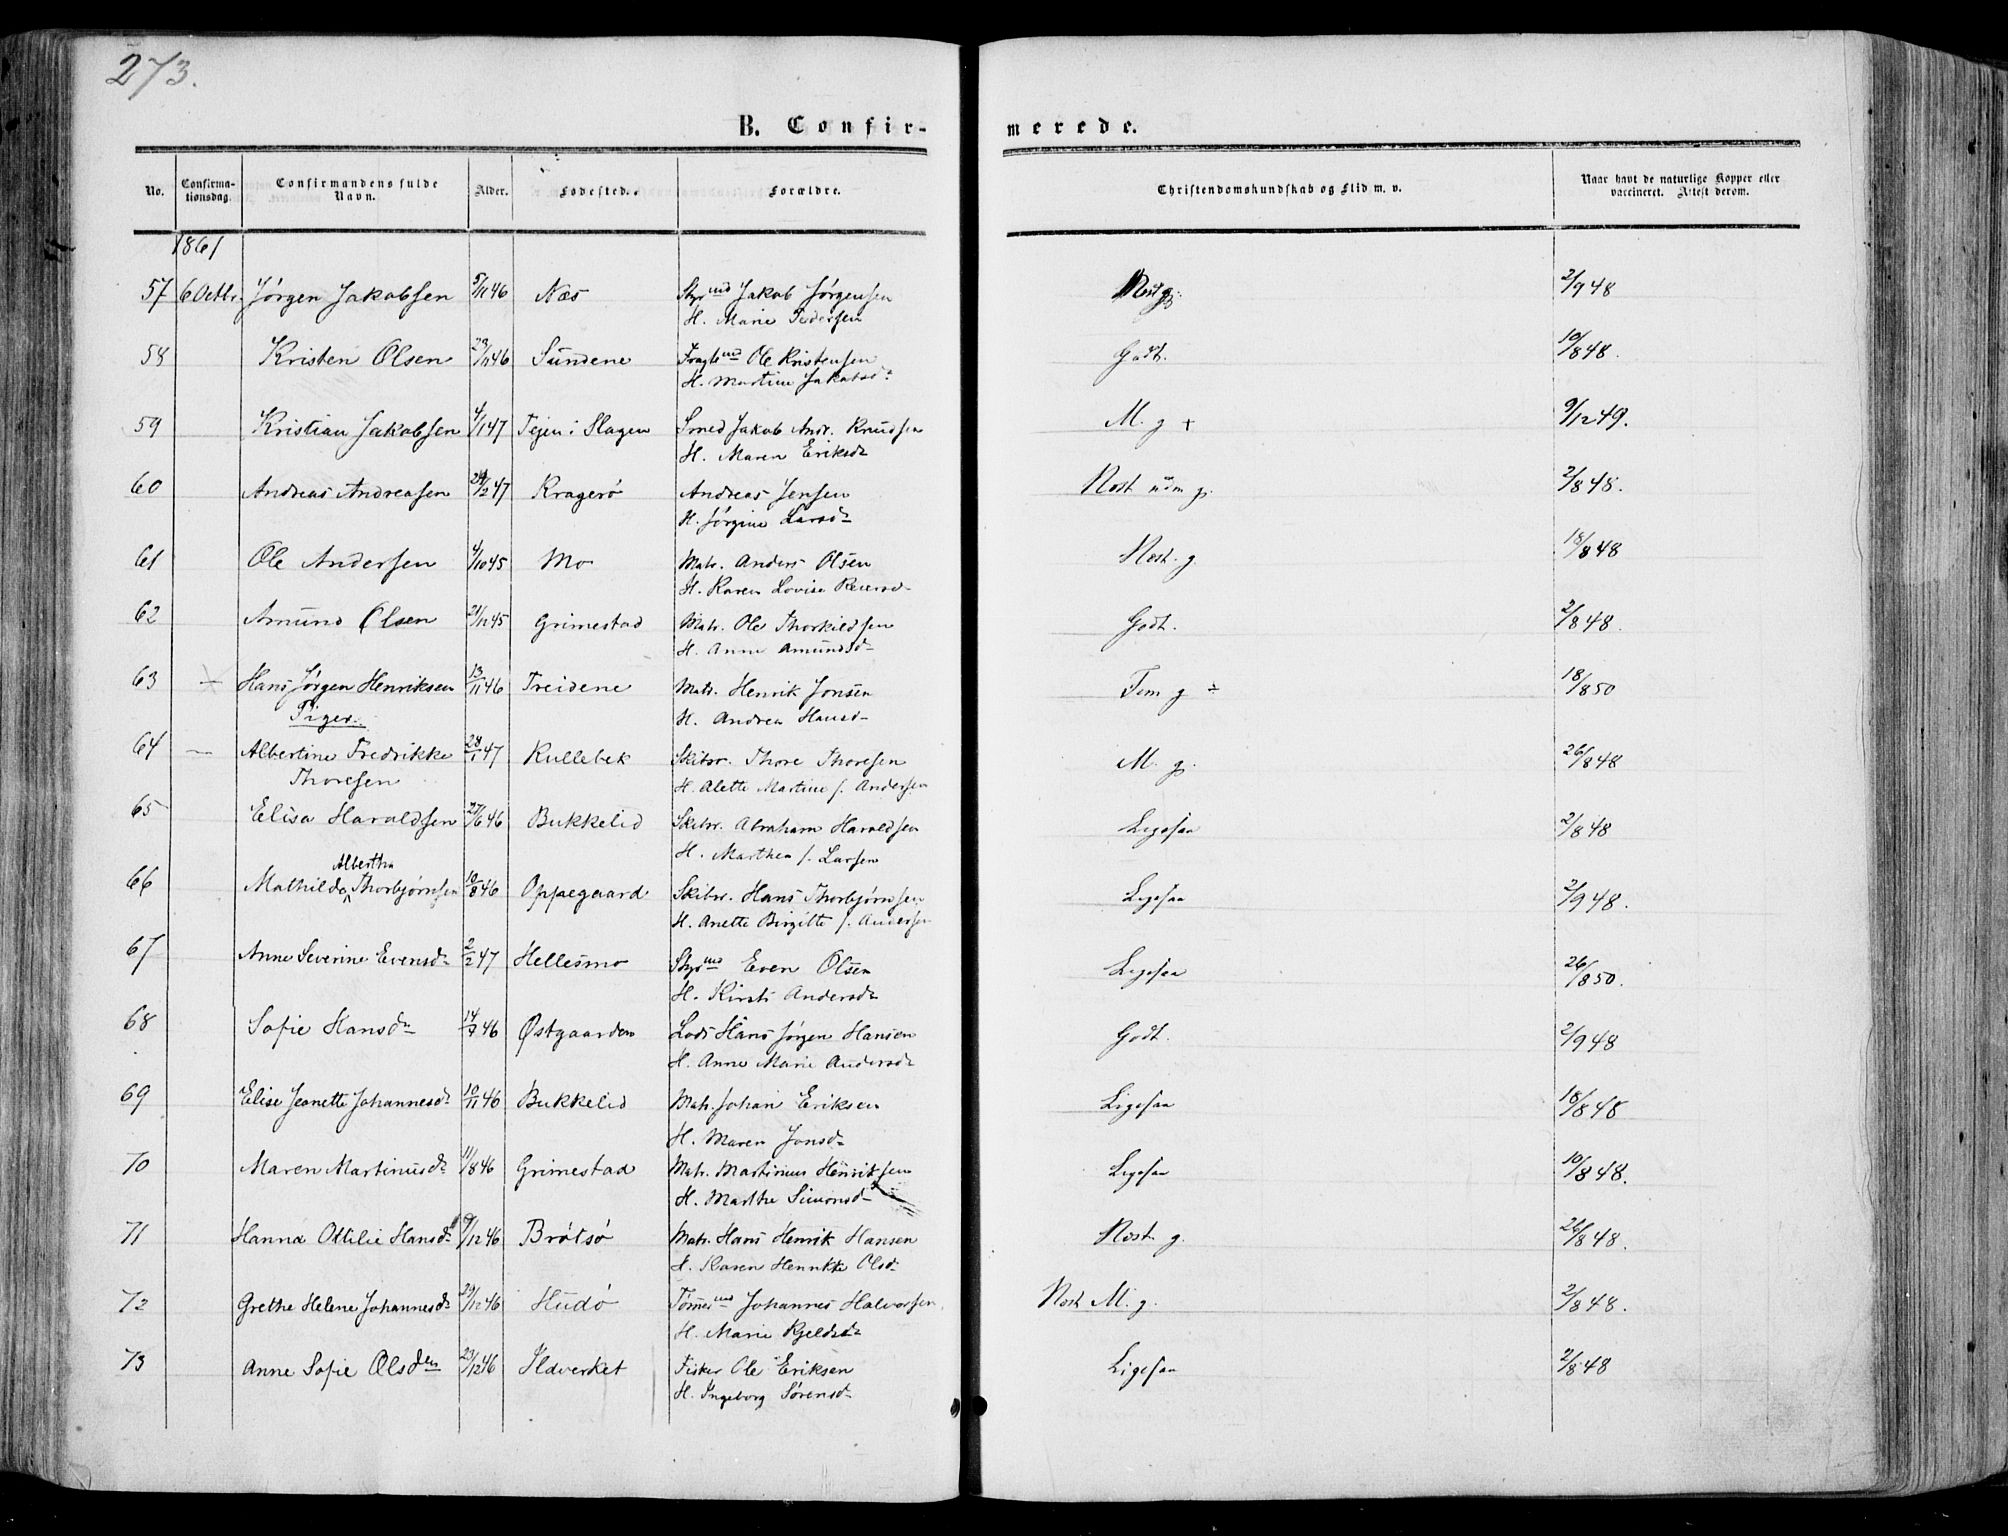 273.
B. Confir-
merede.
No. Confirma-tionsdag. Confirmandens fulde Navn. Alder. Fødested. Forældre. Christendomskundskab og Flid m. v. Naar havt de naturlige Kopper eller vaccineret. Attest derom.
1861
57 6 Octbr. Jørgen Jakobsen 5/11 46 Næs Styrmd Jakob Jørgensen Næst g. 2/9 48
H. Marie Pedersen
58 Kristen Olsen 23/11 46 Sundene Fragtmd Ole Kristensen Godt. 10/8 48.
H. Martine Jakobsd.
59 Kristian Jakobsen 4/1 47 Tejen i Slagen Smed Jakob Andr. Knudsen M. g + 9/12 49.
H. Maren Eriksdr
60 Andreas Andreasen 24/2 47 Kragerø Andreas Jensen Næst udm g. 2/8 48.
H. Jørgine Larsdr
61 Ole Andersen 4/10 45 Mo Matr. Anders Olsen Næst. g 18/8 48
H. Karen Lovise Reiersd
62 Amund Olsen 21/11 45 Grimestad Matr. Ole Thorkildsen Godt. 2/8 48.
H. Anne Amundsdr
63 Hans Jørgen Henriksen 13/11 46 Treidene Matr. Henrik Jonsen Tem g ÷ 18/8 50
Tiger. H. Andrea Hansd
64 Albertine Fredrikke 28/1 47 Rullebek Skibsr. Thore Thoresen M. g. 26/8 48
Thoresen H. Alette Martine f. Andersen
65 Elisa Haraldsen 27/6 46 Bukkelid Skibsr. Abraham Haraldsen Ligesaa 2/8 48
H. Marthea f. Larsen
Albertha
66 Mathilda Thorbjørnsen 10/8 46 Oppegaard Skibsr. Hans Thorbjørnsen Ligesaa 2/9 48.
H. Anette Birgitte f. Andersen
67 Anne Severine Evensdr 2/2 47 Hellesmo Styrmd Even Olsen Ligesaa 26/8 50.
H. Kirsti Andersdr
68 Sofie Hansdr 14/9 46 Østgaarden Lods Hans Jørgen Hansen Godt. 2/9 48
H. Anne Marie Andersdr
69 Elise Jeanette Johannesdr 10/11 46 Bukkelid Matr. Johan Eriksen Ligesaa 18/8 48
H. Maren Jonsdr
70 Maren Martinusdr 11/8 46 Grimestad Matr. Martinus Henriksen Ligesaa 10/8 48.
H. Marthe Simonsdr
71 Hanna Ottilie Hansdr 9/12 46 Brøtsø Matr. Hans Henrik Hansen Næst g. 26/8 48.
H. Karen Henrikke Olsdr
72 Grethe Helene Johannesdr 29/12 46 Hudø Tømmermd Johannes Halvorsen Næst M. g. 2/8 48.
H. Marie Kjeldsdr
73 Anne Sofie Olsden 23/12 46 Ildverket Fisker Ole Eriksen Ligesaa 2/8 48
H. Ingeborg Sørensdr